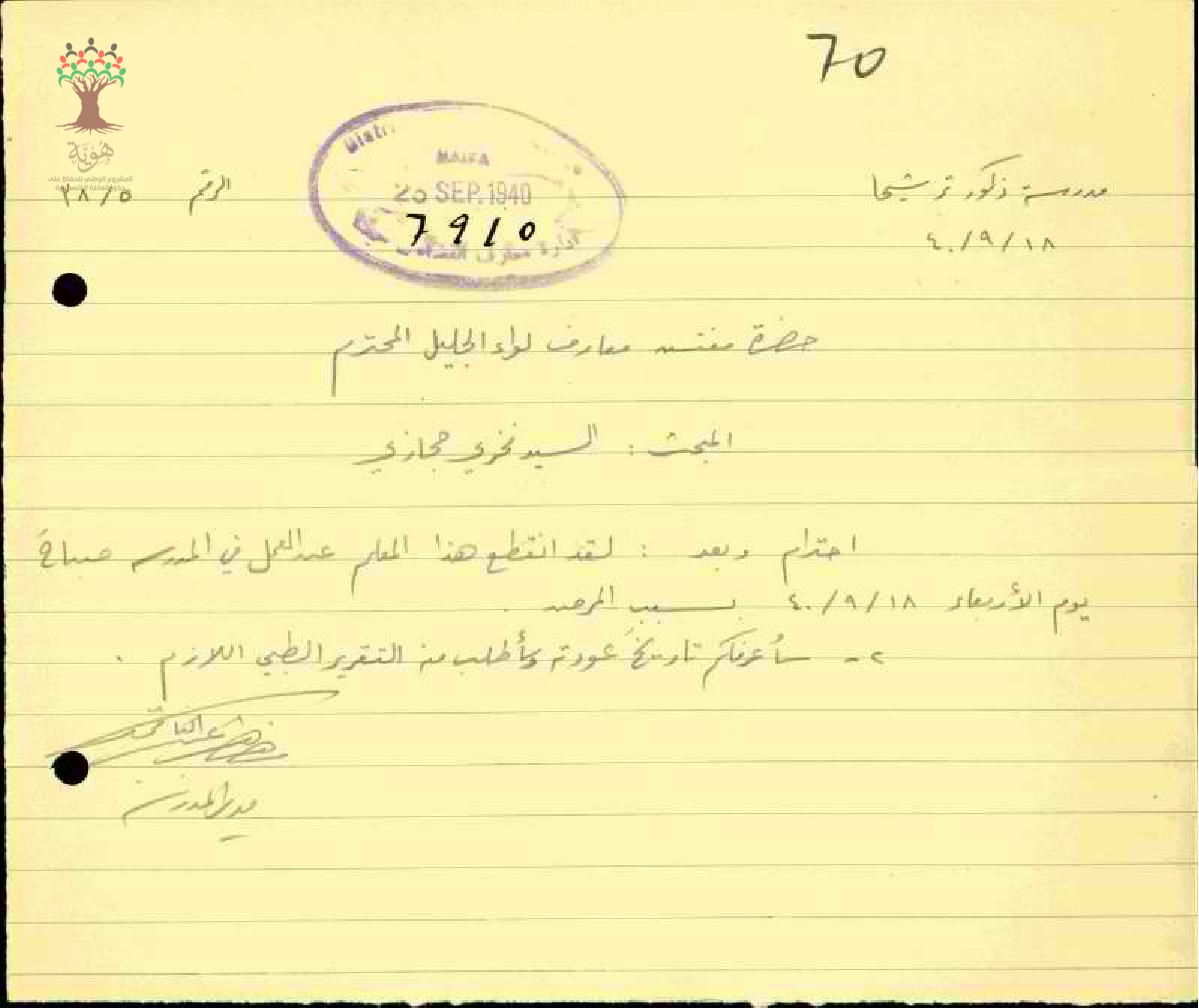 70
هوية
المشروع الوطني للحفاظ على
Distri
HAIFA
25 SEP. 1940
7910
ادارة معارف
مدرسة ذكور ترشيحا
الرقم ٣٨/٥
٤٠/٩/١٨
حضرة مفتش معارف لواء الجليل المحترم
المبحث : السيد فخري حجازي
احترام وبعد : لقد انقطع هذا المعلم عن العمل في المدرسة صباح
يوم الأربعاء ٤٠/٩/١٨ بسبب المرض .
٢ - سأعرفكم تاريخ عودته وأطلب منه التقرير الطبي اللازم .
مدير المدرسة